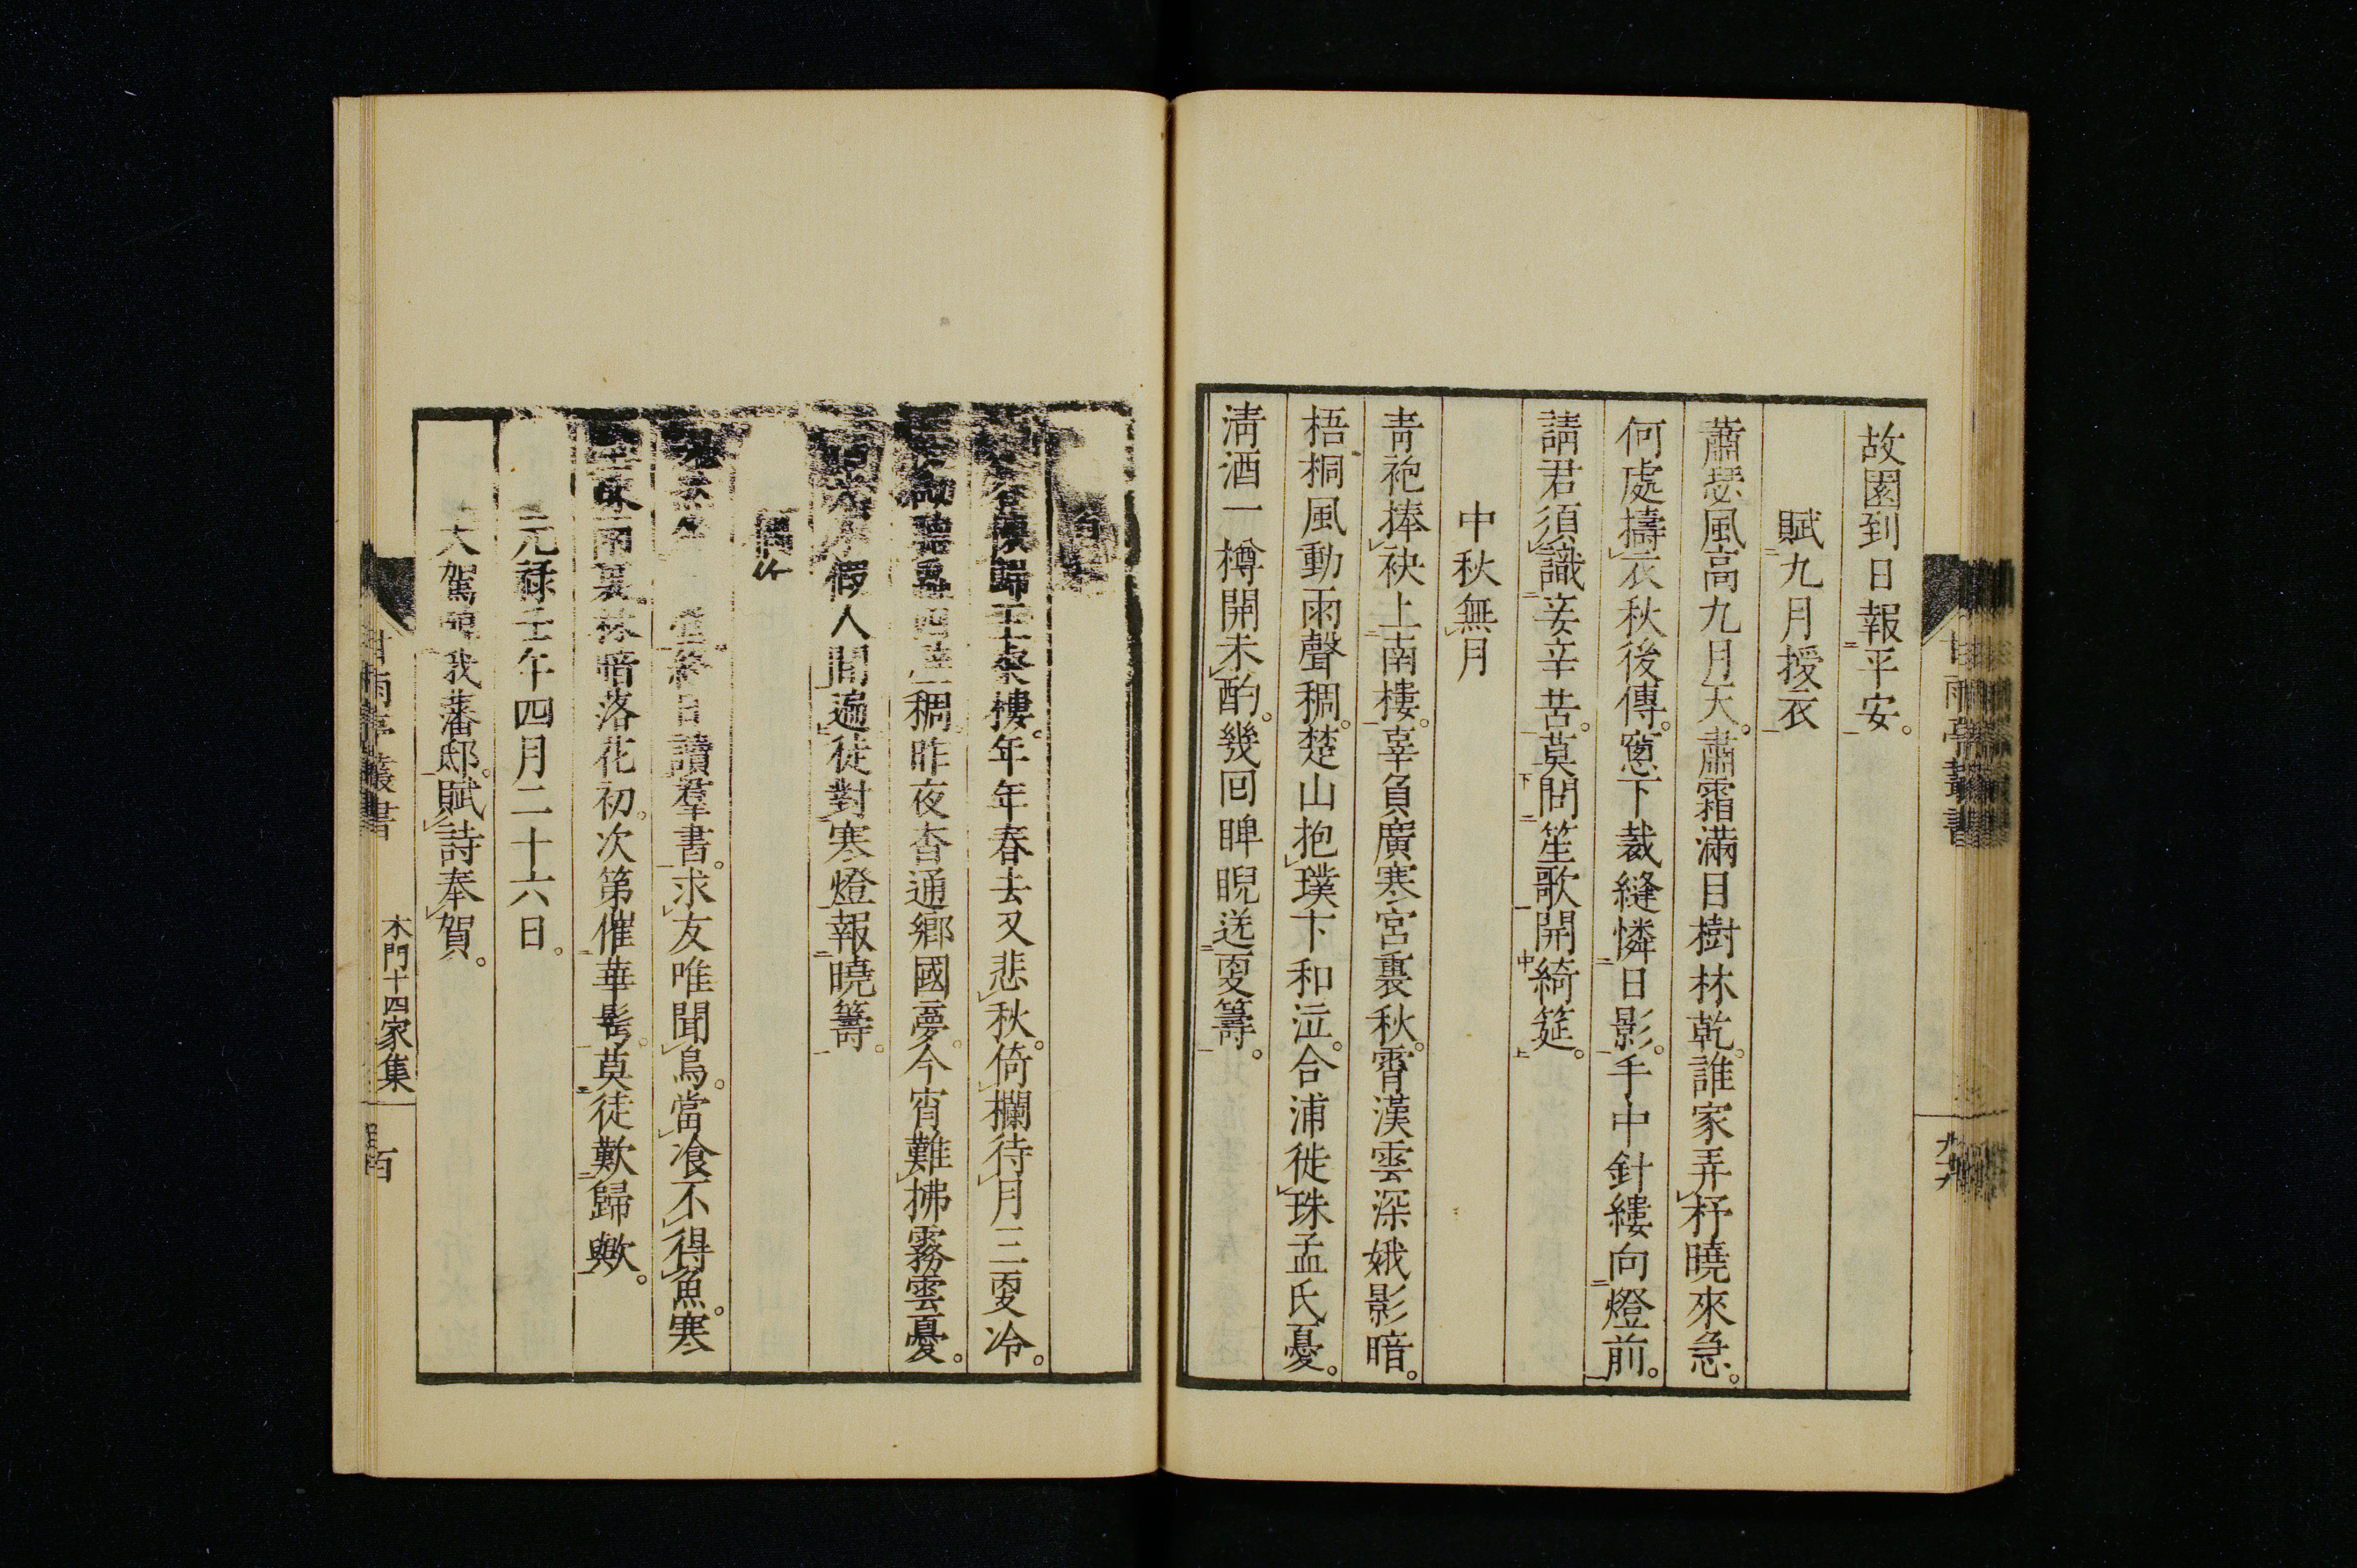 故園到日報平安。
賦九月授衣
蕭瑟風高九月天。肅霜滿目樹林乾。誰家弄杼曉來急。
何處擣衣秋後傳。窻下裁縫憐日影。手中針縷向燈前。
請君須識妾辛苦。莫問笙歌開綺筵。
中秋無月
靑袍捧袂上南樓。辜負廣寒宮裏秋。霄漢雲深娥影暗。
梧桐風動雨聲稠。楚山抱璞卞和泣。合浦徙珠孟氏憂。
淸酒一樽開未酌。幾回睥睨送更籌。
甘雨亭叢書
懷歸王粲樓。年年春去又悲秋。倚欄待月三更冷。
稠。昨夜杳通鄉國夢。今宵難拂霧雲憂。
假人間遍。徒對寒燈報曉籌。
終日讀羣書。求友唯聞鳥。當飡不得魚。寒
雨裏。林暗落花初。次第催華髩。莫徒歎歸歟。
元祿壬午四月二十六日。
大駕 我藩邸。賦詩奉賀。
甘雨亭叢書
木門十四家集
百